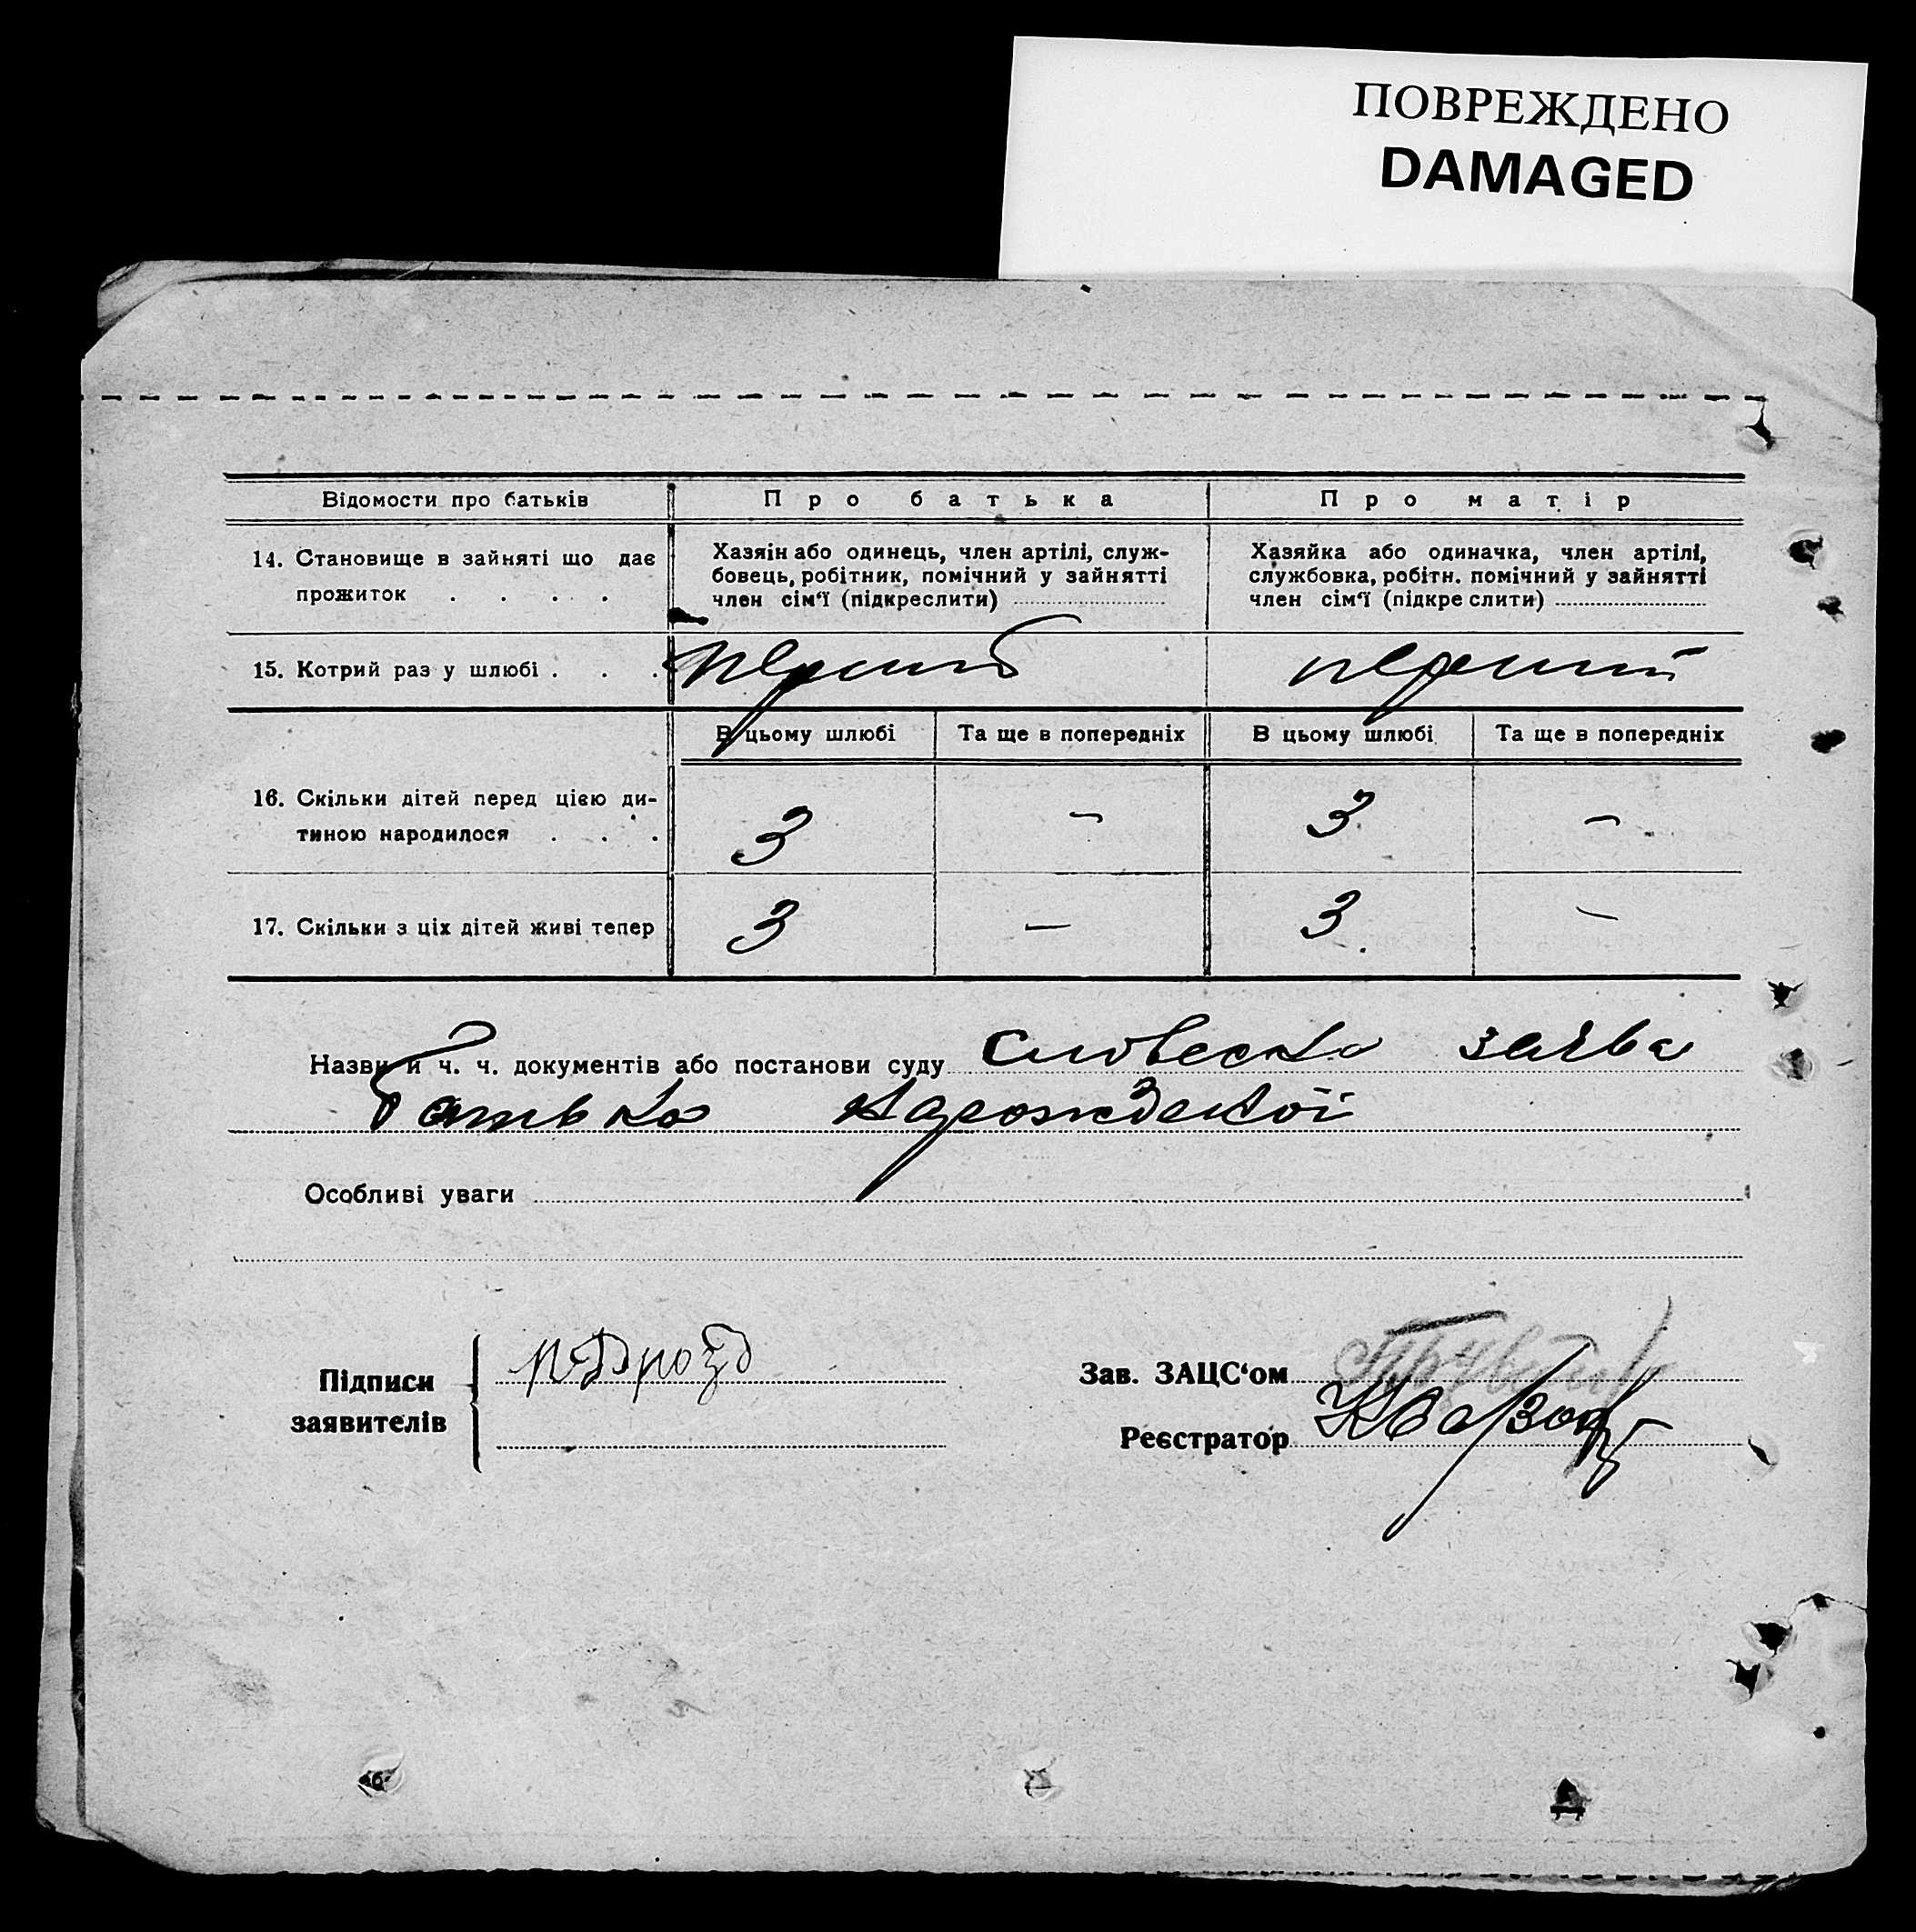 ПОВРЕЖДЕНО
DAMAGED
Відомости про батьків
Про батька
Про матір
14. Становище в зайняті що дає
прожиток . . . .
Хазяін або одинець, член артілі, служ-
бовець, робітник, помічний у зайнятті
член сім'ї (підкреслити)
Хазяйка або одиначка, член артілі,
службовка, робітн. помічний у зайнятті
член сім'ї (підкреслити)
15. Котрий раз у шлюбі . . .
перший
перший
В цьому шлюбі
Та ще в попередніх
В цьому шлюбі
Та ще в попередніх
16. Скільки дітей перед цією ди-
тиною народилося . . .
3
—
3
—
17. Скільки з ціх дітей живі тепер
3
—
3
—
Назви й ч. ч. документів або постанови суду Словесна заява
батька нарожденої
Особливі уваги
Підписи
заявителів
Дрозд
Зав. ЗАЦС'ом
Реєстратор